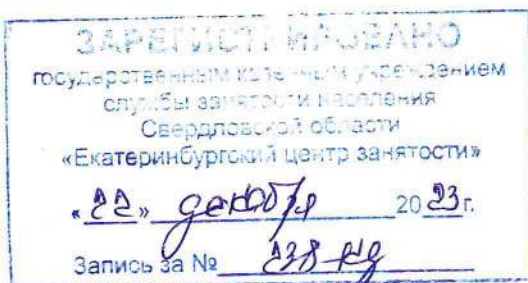 ЗАРЕГИСТРИРОВАНО
государственным казенным учреждением
службы занятости населения
Свердловской области
«Екатеринбургский центр занятости»
«22» декабря 2023г.
Запись за № 238-кд